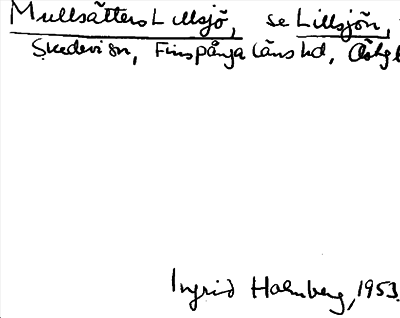 Mullsätters Lillsjö, se Lillsjön,
Skedevi sn, Finspånga läns hd, Östg
Ingrid Holmberg, 1953.